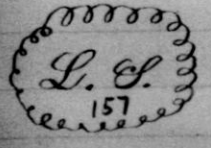 L. S.
157